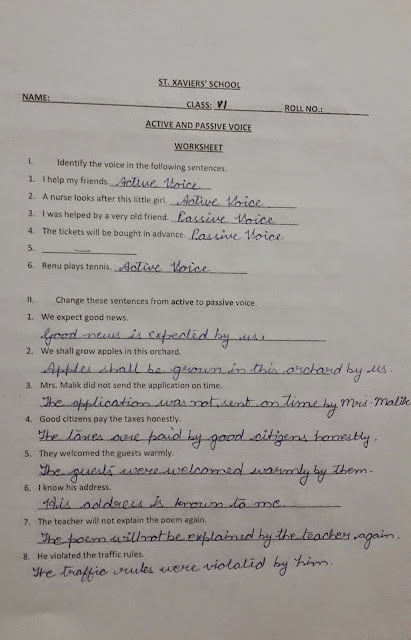 ST. XAVIERS' SCHOOL
NAME: CLASS: VI ROLL NO.:
ACTIVE AND PASSIVE VOICE
WORKSHEET
I. Identify the voice in the following sentences.
1. I help my friends. Active Voice
2. A nurse looks after this little girl. Active Voice
3. I was helped by a very old friend. Passive Voice
4. The tickets will be bought in advance. Passive Voice
5.
6. Renu plays tennis. Active Voice
II. Change these sentences from active to passive voice.
1. We expect good news.
Good news is expected by us.
2. We shall grow apples in this orchard.
Apples shall be grown in this orchard by us.
3. Mrs. Malik did not send the application on time.
The application was not sent on time by Mrs. Malik
4. Good citizens pay the taxes honestly.
The taxes are paid by good citizens honestly.
5. They welcomed the guests warmly.
The guests were welcomed warmly by them.
6. I know his address.
His address is known to me.
7. The teacher will not explain the poem again.
The poem will not be explained by the teacher again.
8. He violated the traffic rules.
The traffic rules were violated by him.